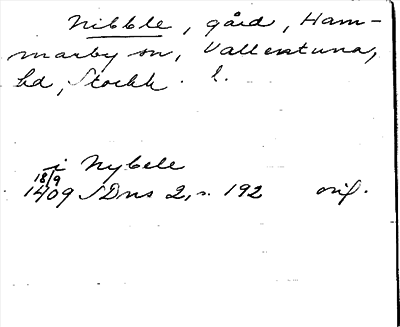 Nibble, gård, Ham-
marby sn, Vallentuna,
hd, Stockh. l.
i Nybele
18/9
1409 SDns 2, s. 192 orig.